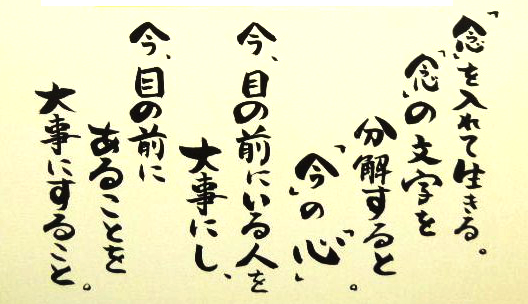 「念」を入れて生きる。
「念」の文字を
分解すると
「今」の「心」。
今、目の前にいる人を
大事にし、
今、目の前に
あることを
大事にすること。